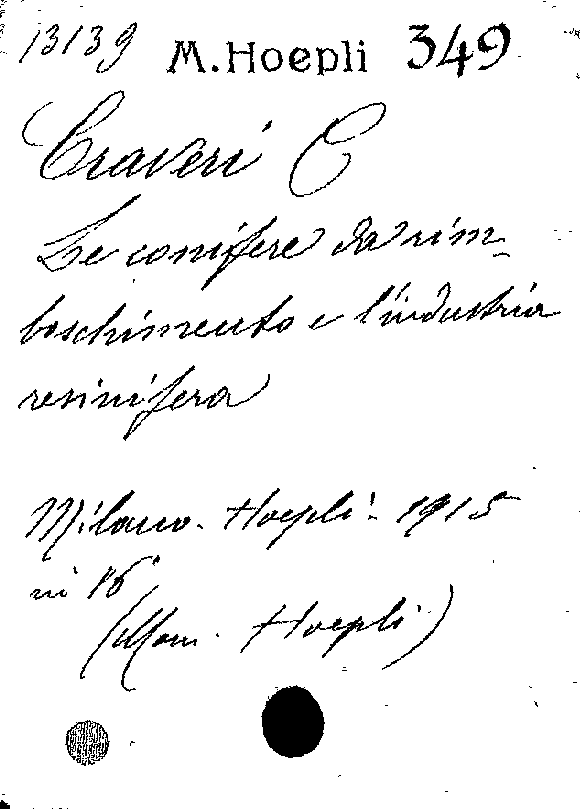 13139 M. Hoepli 349
Craveri C
Le conifere da rim-
boschimento e l'industria
resinifera
Milano. Hoepli - 1915
in 16°
(Man. Hoepli)